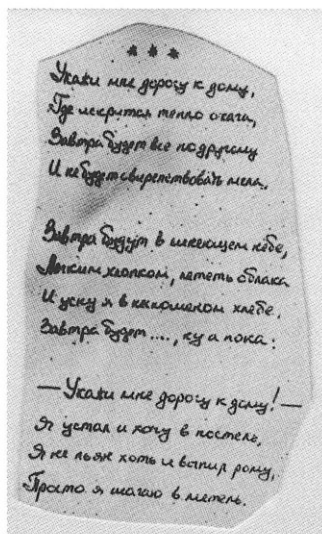 * * *
Укажи мне дорогу к дому,
Где искрится тепло очага,
Завтра будет все по другому
И не будет свирепствовать мгла.
Завтра будут в млеющем небе,
Легким хлопком, лететь облака
И усну я в нескошеном хлебе.
Завтра будет...., ну а пока:
— Укажи мне дорогу к дому! —
Я устал и хочу в постель,
Я не пьян хоть и выпил рому,
Просто я шагаю в метель.